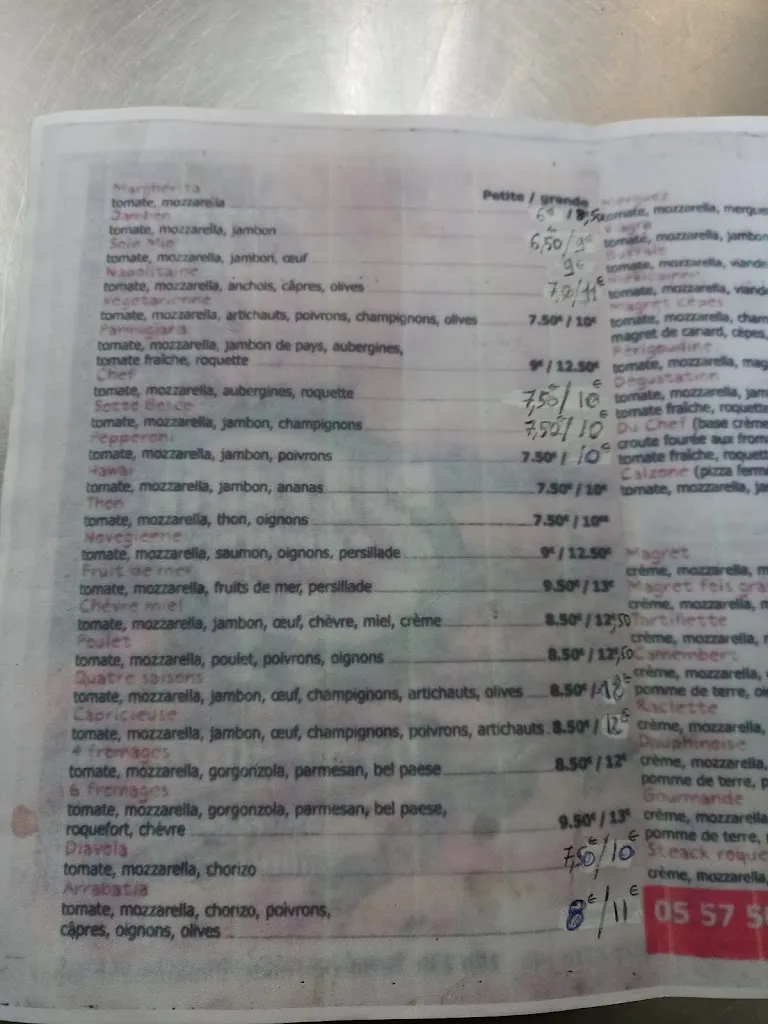 Margherita
Petite / grande
tomate, mozzarella 6€ / 8,50
Jambon
tomate, mozzarella, jambon 6,50 / 9€
Sole Mio
tomate, mozzarella, jambon, œuf 9€
Napolitaine
tomate, mozzarella, anchois, câpres, olives
Végétarienne
tomate, mozzarella, artichauts, poivrons, champignons, olives 7.50€ / 10€
Parmigiara
tomate, mozzarella, jambon de pays, aubergines,
tomate fraîche, roquette 9€ / 12.50€
Chef
tomate, mozzarella, aubergines, roquette 7,50€ / 10€
tomate, mozzarella, jambon, champignons 7,50€ / 10€
Pepperoni
tomate, mozzarella, jambon, poivrons 7.50€ / 10€
Hawaï
tomate, mozzarella, jambon, ananas 7.50€ / 10€
Thon
tomate, mozzarella, thon, oignons 7.50€ / 10€
tomate, mozzarella, saumon, oignons, persillade 9€ / 12.50€
Fruit de mer
tomate, mozzarella, fruits de mer, persillade 9.50€ / 13€
Chèvre miel
tomate, mozzarella, jambon, œuf, chèvre, miel, crème 8.50€ / 12€,50
Poulet
tomate, mozzarella, poulet, poivrons, oignons 8.50€ / 12€,50
Quatre saisons
tomate, mozzarella, jambon, œuf, champignons, artichauts, olives 8.50€ / 12€
Capricieuse
tomate, mozzarella, jambon, œuf, champignons, poivrons, artichauts 8.50€ / 12€
4 fromages
tomate, mozzarella, gorgonzola, parmesan, bel paese 8.50€ / 12€
6 fromages
tomate, mozzarella, gorgonzola, parmesan, bel paese,
roquefort, chèvre 9.50€ / 13€
Diavola
tomate, mozzarella, chorizo 7,50€ / 10€
Arrabatia
tomate, mozzarella, chorizo, poivrons,
câpres, oignons, olives 8€ / 11€
Merguez
tomate, mozzarella, mergue
tomate, mozzarella, jambon
tomate, mozzarella, viande
tomate, mozzarella, viand
Magret cèpes
tomate, mozzarella, cham
magret de canard, cèpes,
Périgourdine
tomate, mozzarella, mag
Dégustation
tomate, mozzarella, jam
tomate fraîche, roquette
Du Chef (base crème
croute fourée aux from
tomate fraîche, roquett
Calzone (pizza ferm
tomate, mozzarella, ja
Magret
crème, mozzarella, m
Magret fois gra
crème, mozzarella, m
Tartiflette
crème, mozzarella, r
Camembert
crème, mozzarella,
pomme de terre, oi
Raclette
crème, mozzarella,
Dauphinoise
crème, mozzarella,
pomme de terre, p
Gourmande
crème, mozzarella
pomme de terre,
Steack roque
crème, mozzarella,
05 57 5